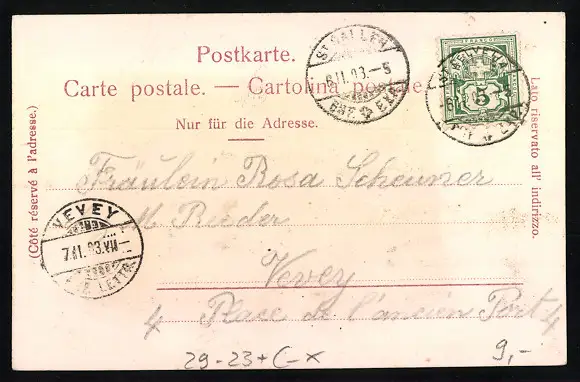 Postkarte.
Carte postale. — Cartolina postale.
Nur für die Adresse.
(Côté réservé à l'adresse.)
Lato riservato all' indirizzo.
ST GALLEN
6.II.93.–5
5
VEVEY
7.II.93.VII–
Fräulein Rosa Scheuner
M. Rieder
Vevey
4 Place de l'ancien Port 4
29-23+C-x
9,-